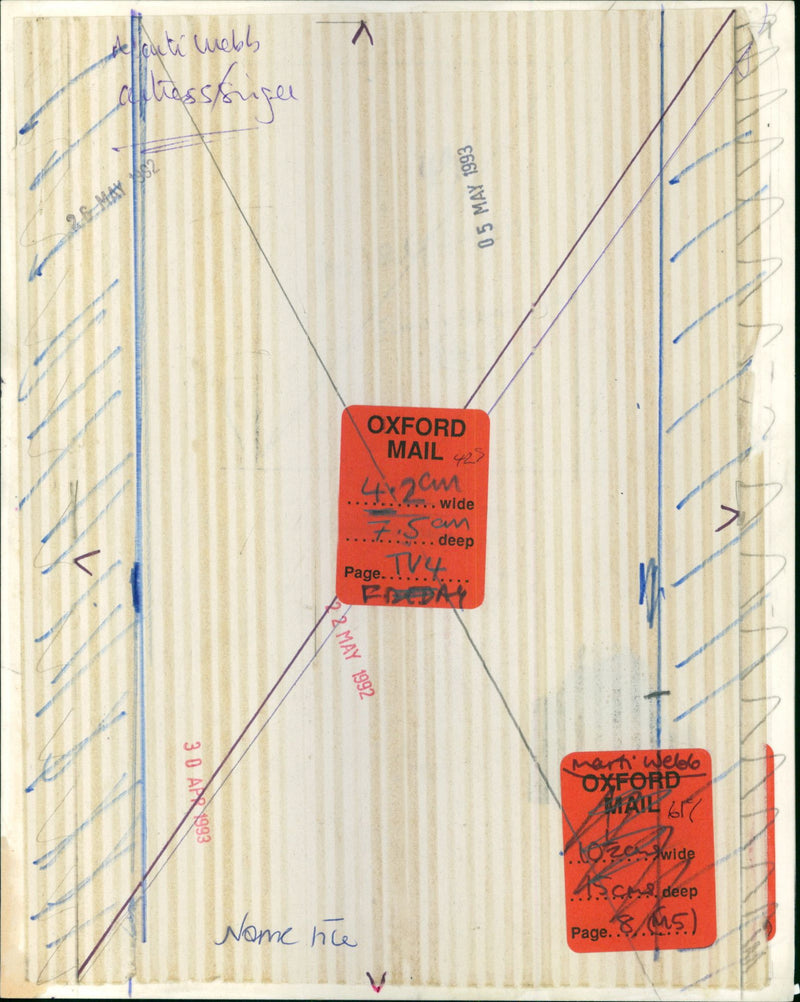 Marti Webb
actress/singer
26 MAY 1992
05 MAY 1993
OXFORD
MAIL 425
4.2cm wide
7.5cm deep
Page TV4
FRIDAY
22 MAY 1992
30 APR 1993
Marti Webb
OXFORD
MAIL 65%
10.2cms wide
15cms deep
Page 8 (M5)
Name